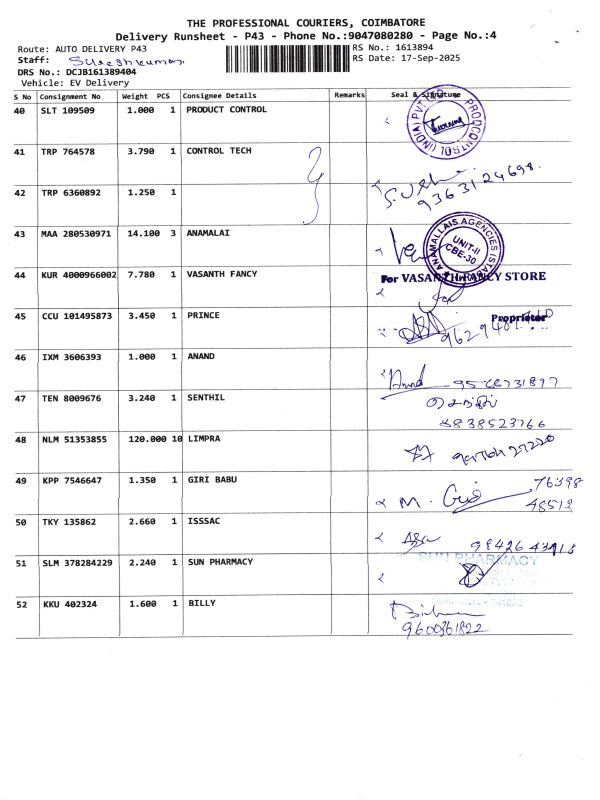 THE PROFESSIONAL COURIERS, COIMBATORE
Delivery Runsheet - P43 - Phone No.:9047080280 - Page No.:4
Route: AUTO DELIVERY P43 RS No.: 1613894
Staff: Sureshkumar RS Date: 17-Sep-2025
DRS No.: DCJB161389404
Vehicle: EV Delivery
S No Consignment No Weight PCS Consignee Details Remarks Seal & Signature
40 SLT 109509 1.000 1 PRODUCT CONTROL
PRODCONTROL (INDIA) PVT
41 TRP 764578 3.790 1 CONTROL TECH
42 TRP 6360892 1.250 1
9363124698.
43 MAA 280530971 14.100 3 ANAMALAI
ANAMALLAIS AGENCIES
UNIT-II
CBE-30
44 KUR 4000966002 7.780 1 VASANTH FANCY
For VASANTH FANCY STORE
45 CCU 101495873 3.450 1 PRINCE
Proprietor
46 IXM 3606393 1.000 1 ANAND
Anand
47 TEN 8009676 3.240 1 SENTHIL
செந்தில்
8838523766
48 NLM 51353855 120.000 10 LIMPRA
49 KPP 7546647 1.350 1 GIRI BABU
76398
M. Giri 45512
50 TKY 135862 2.660 1 ISSSAC
51 SLM 378284229 2.240 1 SUN PHARMACY
SUN PHARMACY
52 KKU 402324 1.600 1 BILLY
9600361822